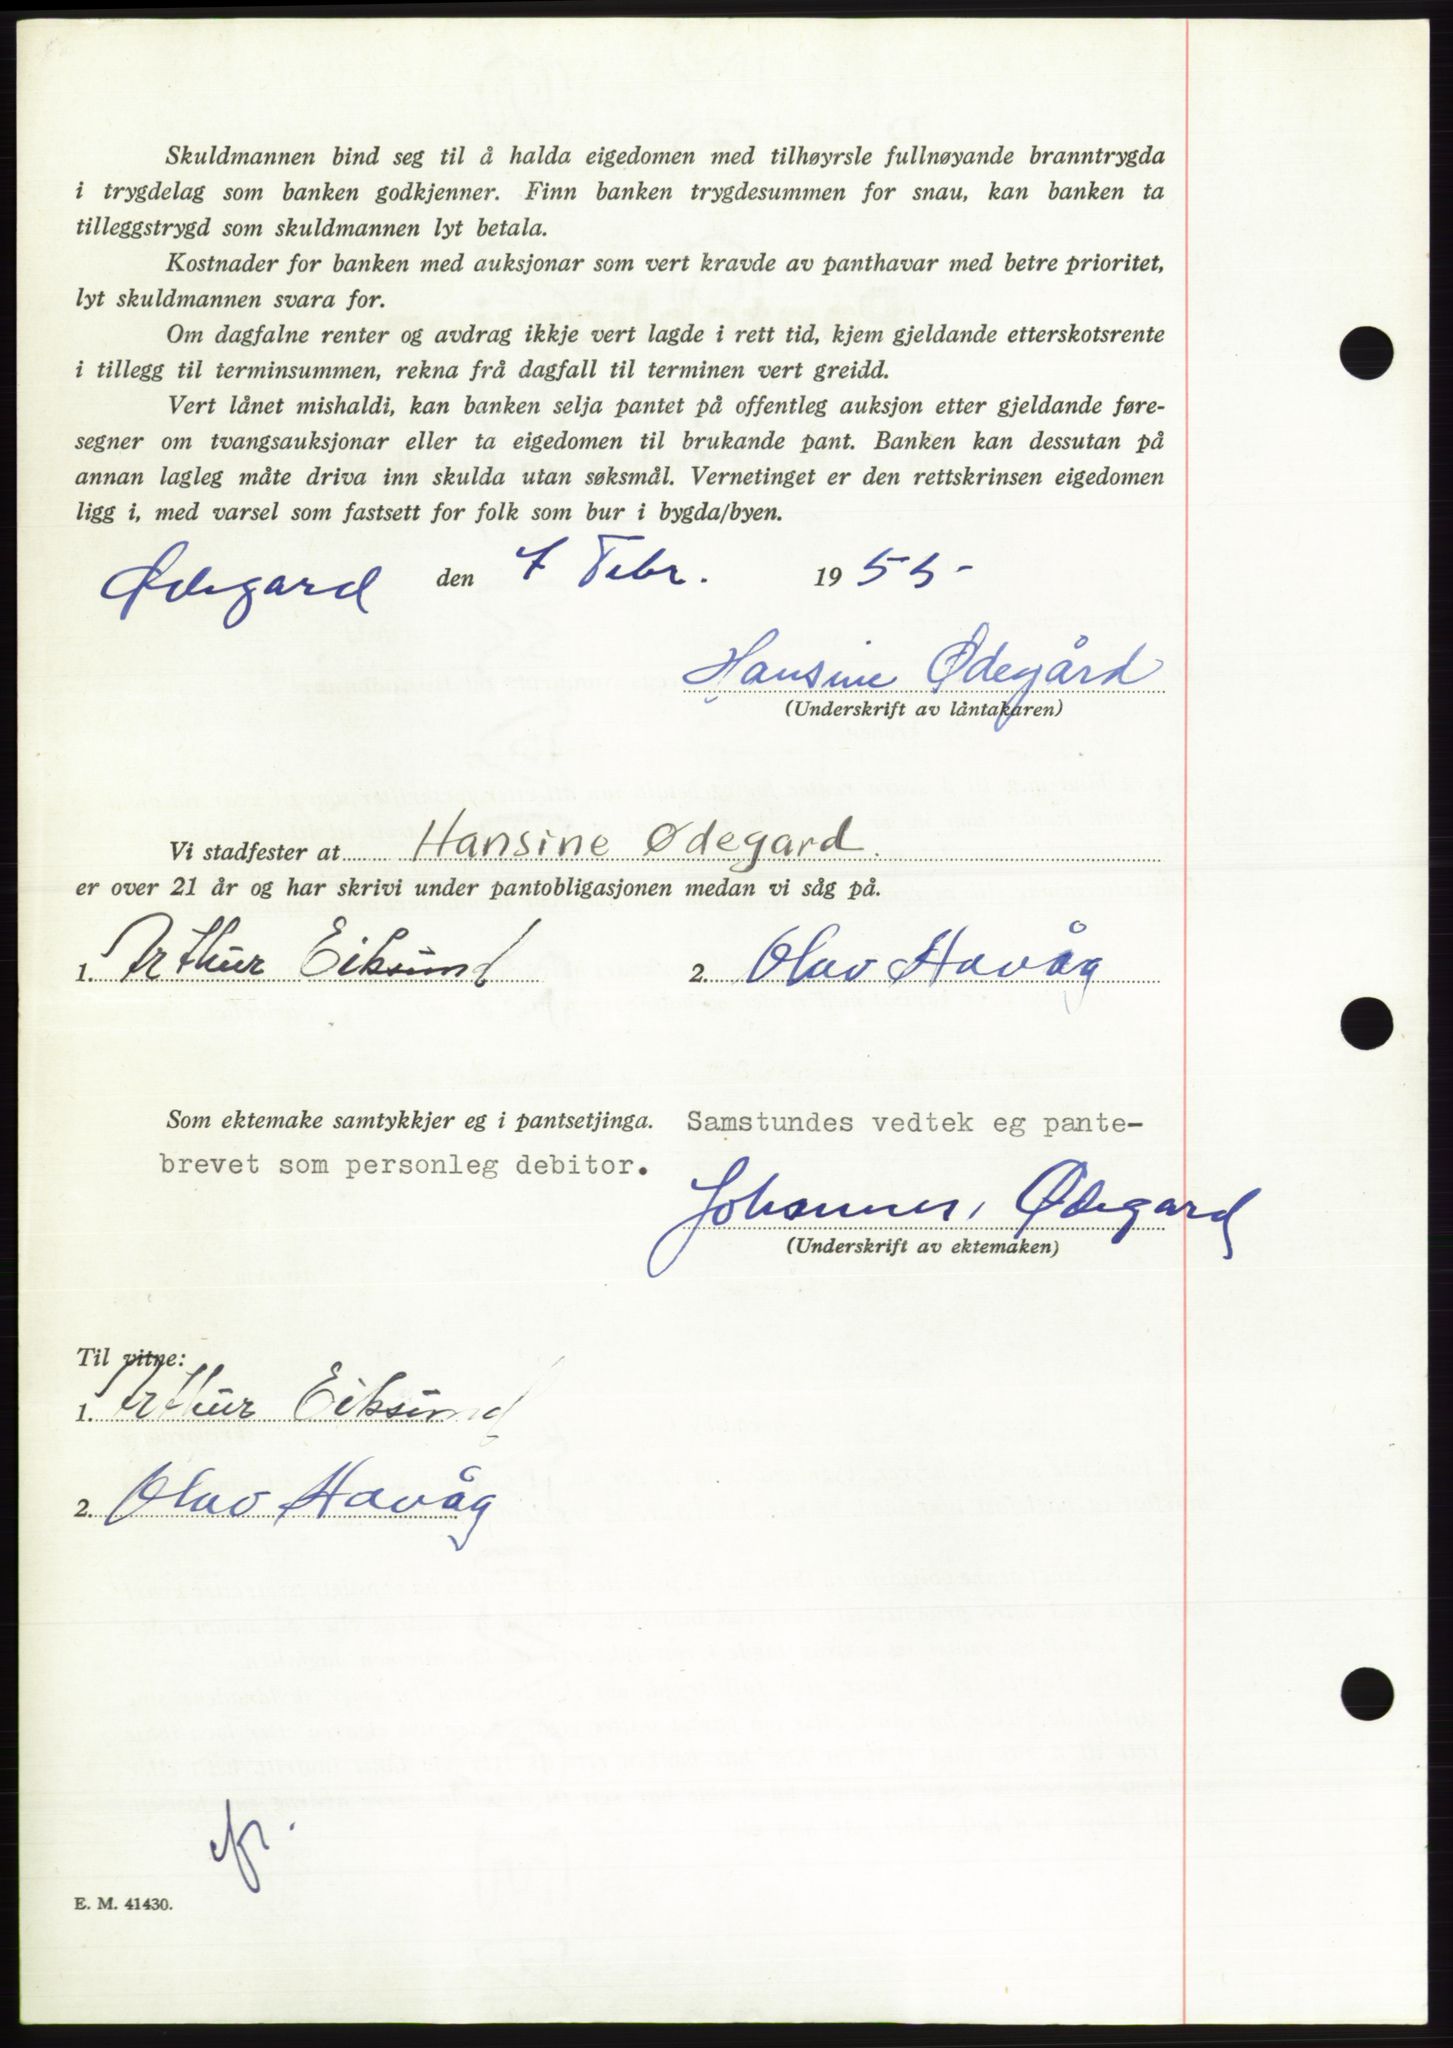 Skuldmannen bind seg til å halda eigedomen med tilhøyrsle fullnøyande branntrygda
i trygdelag som banken godkjenner. Finn banken trygdesummen for snau, kan banken ta
tilleggstrygd som skuldmannen lyt betala.
Kostnader for banken med auksjonar som vert kravde av panthavar med betre prioritet,
lyt skuldmannen svara for.
Om dagfalne renter og avdrag ikkje vert lagde i rett tid, kjem gjeldande etterskotsrente
i tillegg til terminsummen, rekna frå dagfall til terminen vert greidd.
Vert lånet mishaldi, kan banken selja pantet på offentleg auksjon etter gjeldande føre-
segner om tvangsauksjonar eller ta eigedomen til brukande pant. Banken kan dessutan på
annan lagleg måte driva inn skulda utan søksmål. Vernetinget er den rettskrinsen eigedomen
ligg i, med varsel som fastsett for folk som bur i bygda/byen.
Ødegard den 7 Febr. 1955-
Hansine Ødegård
(Underskrift av låntakaren)
Vi stadfester at Hansine Ødegard.
er over 21 år og har skrivi under pantobligasjonen medan vi såg på.
1. Arthur Eiksund 2. Olav Havåg
Som ektemake samtykkjer eg i pantsetjinga. Samstundes vedtek eg pante-
brevet som personleg debitor.
Johannes, Ødegard
(Underskrift av ektemaken)
Til vitne:
1. Arthur Eiksund
2. Olav Havåg
E. M. 41430.